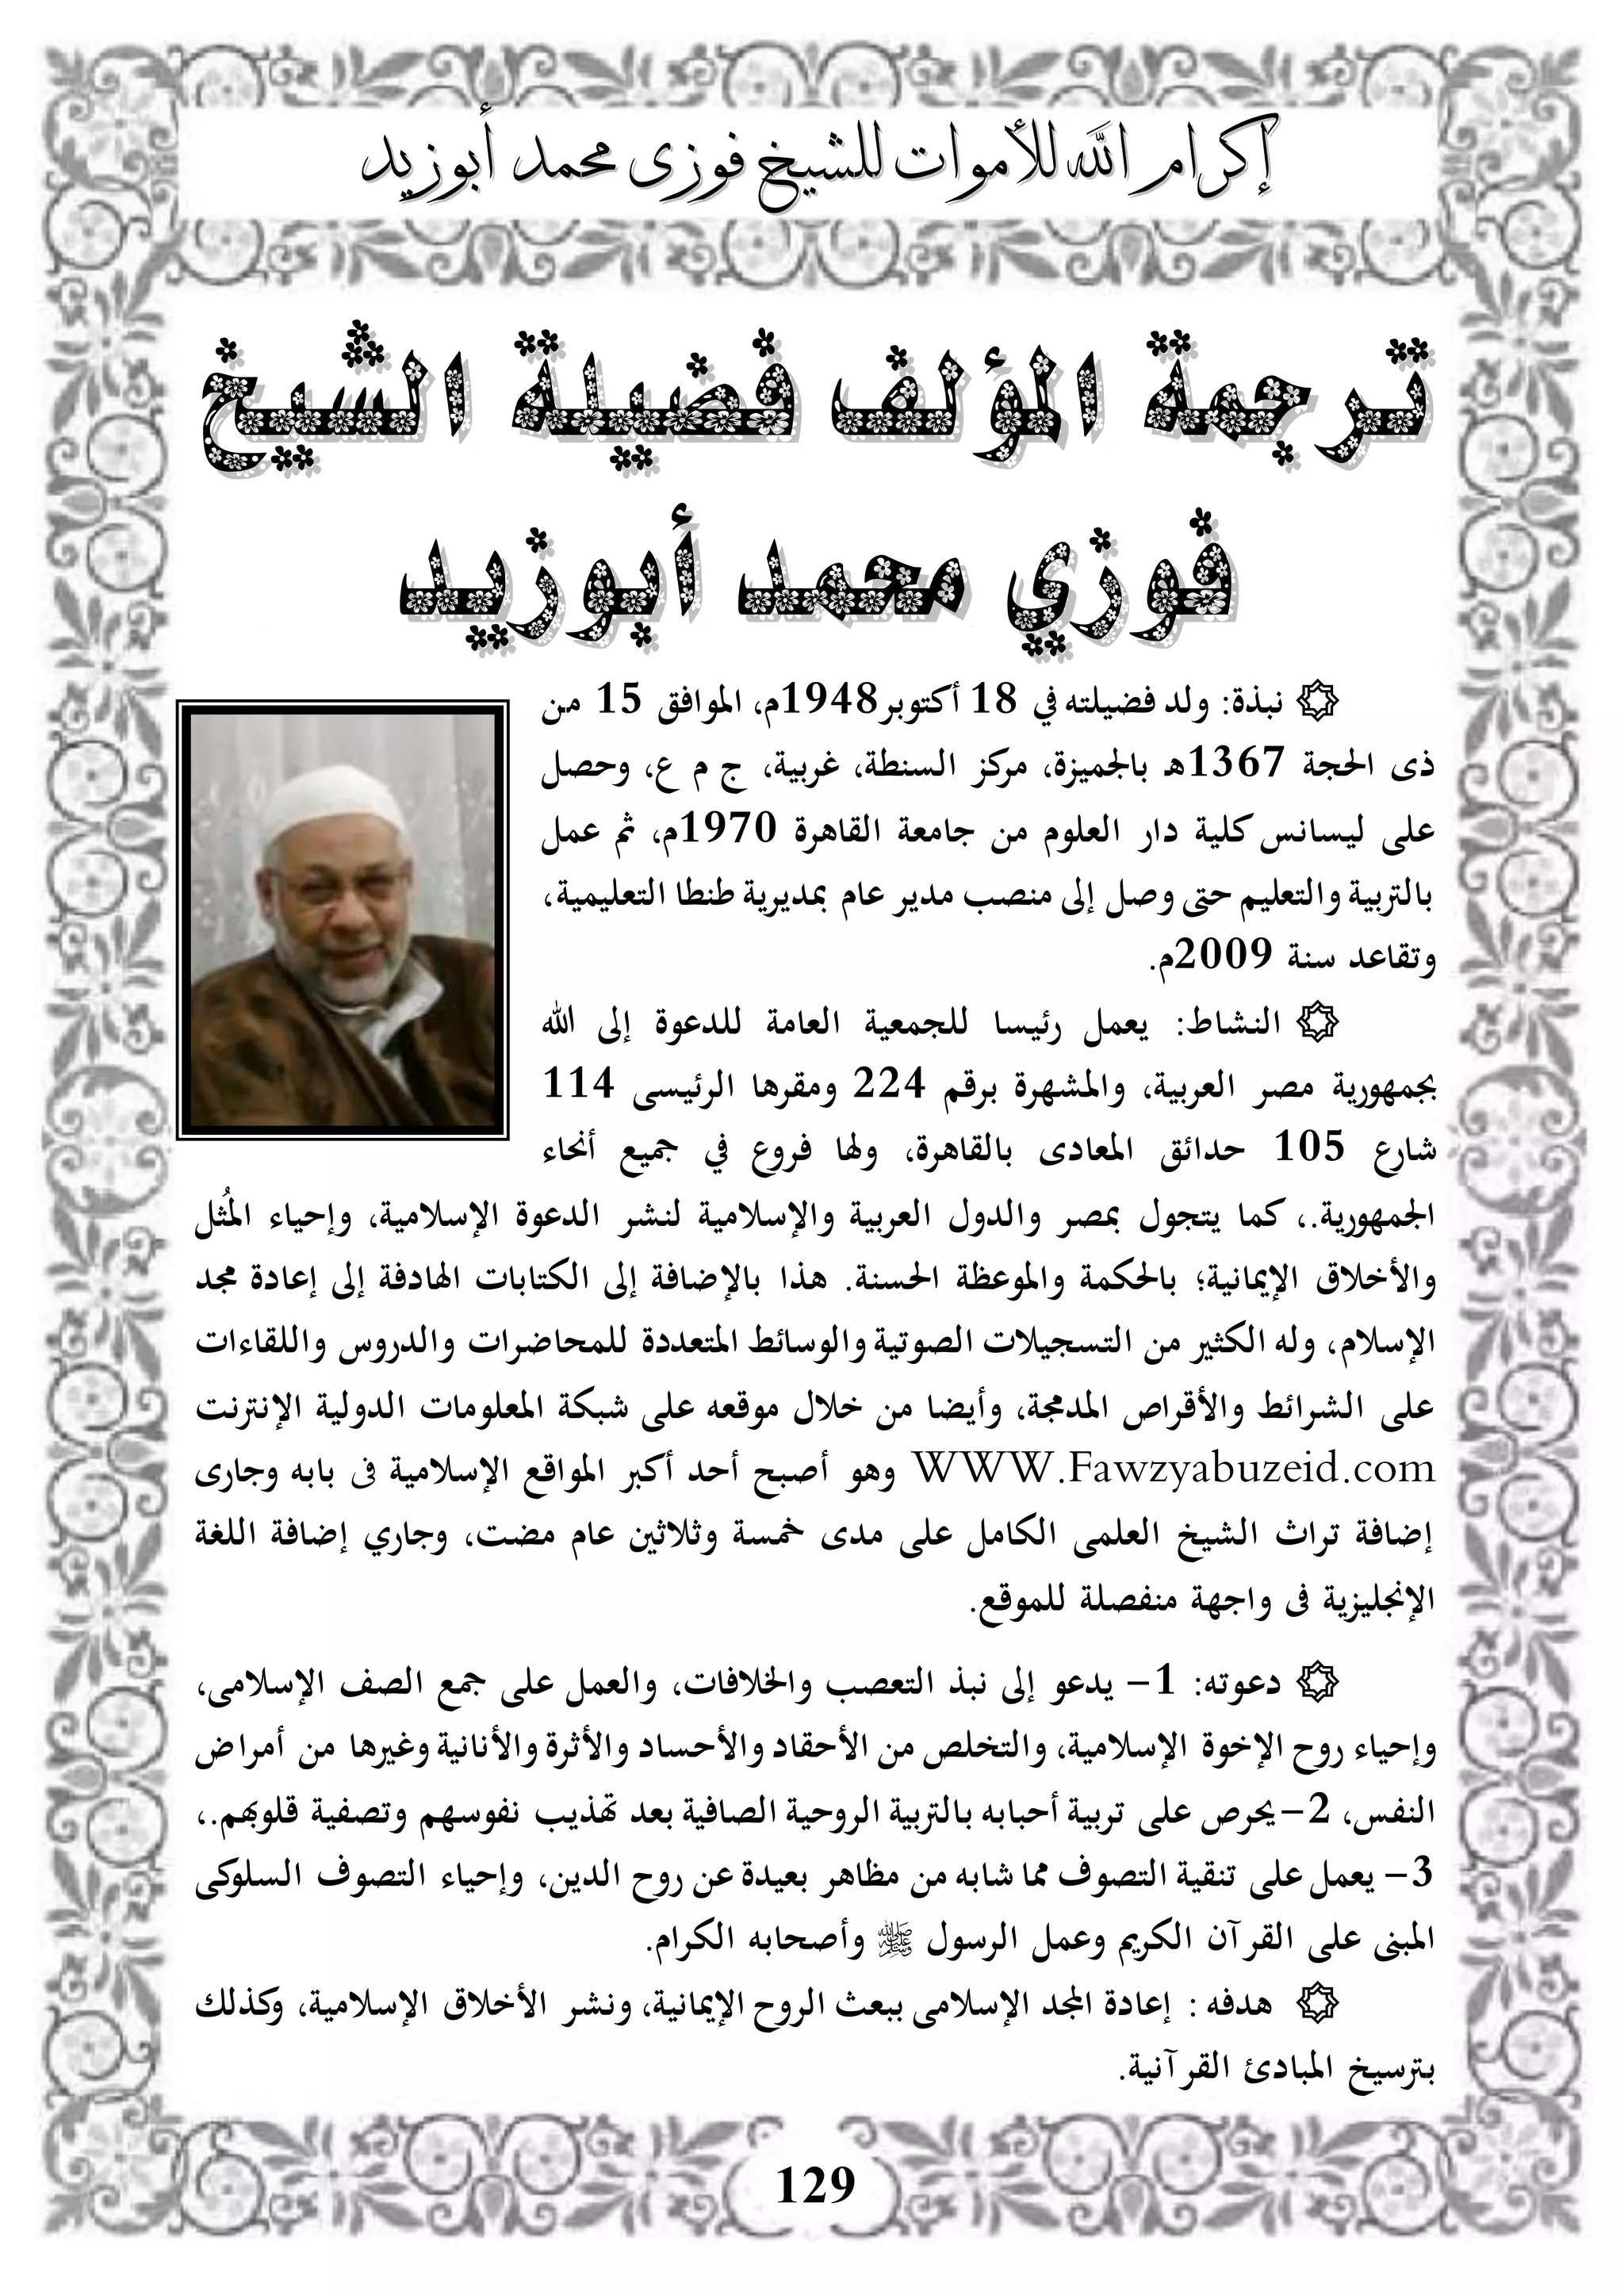 إكرام الله للأموات للشيخ فوزى محمد أبوزيد
ترجمة المؤلف فضيلة الشيخ
فوزي محمد أبوزيد
۞ نبذة: ولد فضيلته في 18 أكتوبر1948م، الموافق 15 من
ذى الحجة 1367هـ بالجميزة، مركز السنطة، غربية، ج م ع، وحصل
على ليسانس كلية دار العلوم من جامعة القاهرة 1970م، ثم عمل
بالتربية والتعليم حتى وصل إلى منصب مدير عام بمديرية طنطا التعليمية،
وتقاعد سنة 2009م.
۞ النشاط: يعمل رئيسا للجمعية العامة للدعوة إلى الله
بجمهورية مصر العربية، والمشهرة برقم 224 ومقرها الرئيسى 114
شارع 105 حدائق المعادى بالقاهرة، ولها فروع في جميع أنحاء
الجمهورية.، كما يتجول بمصر والدول العربية والإسلامية لنشر الدعوة الإسلامية، وإحياء المُثل
والأخلاق الإيمانية؛ بالحكمة والموعظة الحسنة. هذا بالإضافة إلى الكتابات الهادفة إلى إعادة مجد
الإسلام، وله الكثير من التسجيلات الصوتية والوسائط المتعددة للمحاضرات والدروس واللقاءات
على الشرائط والأقراص المدمجة، وأيضا من خلال موقعه على شبكة المعلومات الدولية الإنترنت
WWW.Fawzyabuzeid.com وهو أصبح أحد أكبر المواقع الإسلامية فى بابه وجارى
إضافة تراث الشيخ العلمى الكامل على مدى خمسة وثلاثين عام مضت، وجاري إضافة اللغة
الإنجليزية فى واجهة منفصلة للموقع.
۞ دعوته: 1- يدعو إلى نبذ التعصب والخلافات، والعمل على جمع الصف الإسلامى،
وإحياء روح الإخوة الإسلامية، والتخلص من الأحقاد والأحساد والأثرة والأنانية وغيرها من أمراض
النفس، 2-يحرص على تربية أحبابه بالتربية الروحية الصافية بعد تهذيب نفوسهم وتصفية قلوبهم.،
3- يعمل على تنقية التصوف مما شابه من مظاهر بعيدة عن روح الدين، وإحياء التصوف السلوكى
المبنى على القرآن الكريم وعمل الرسول ﷺ وأصحابه الكرام.
۞ هدفه : إعادة المجد الإسلامى ببعث الروح الإيمانية، ونشر الأخلاق الإسلامية، وكذلك
بترسيخ المبادئ القرآنية.
129